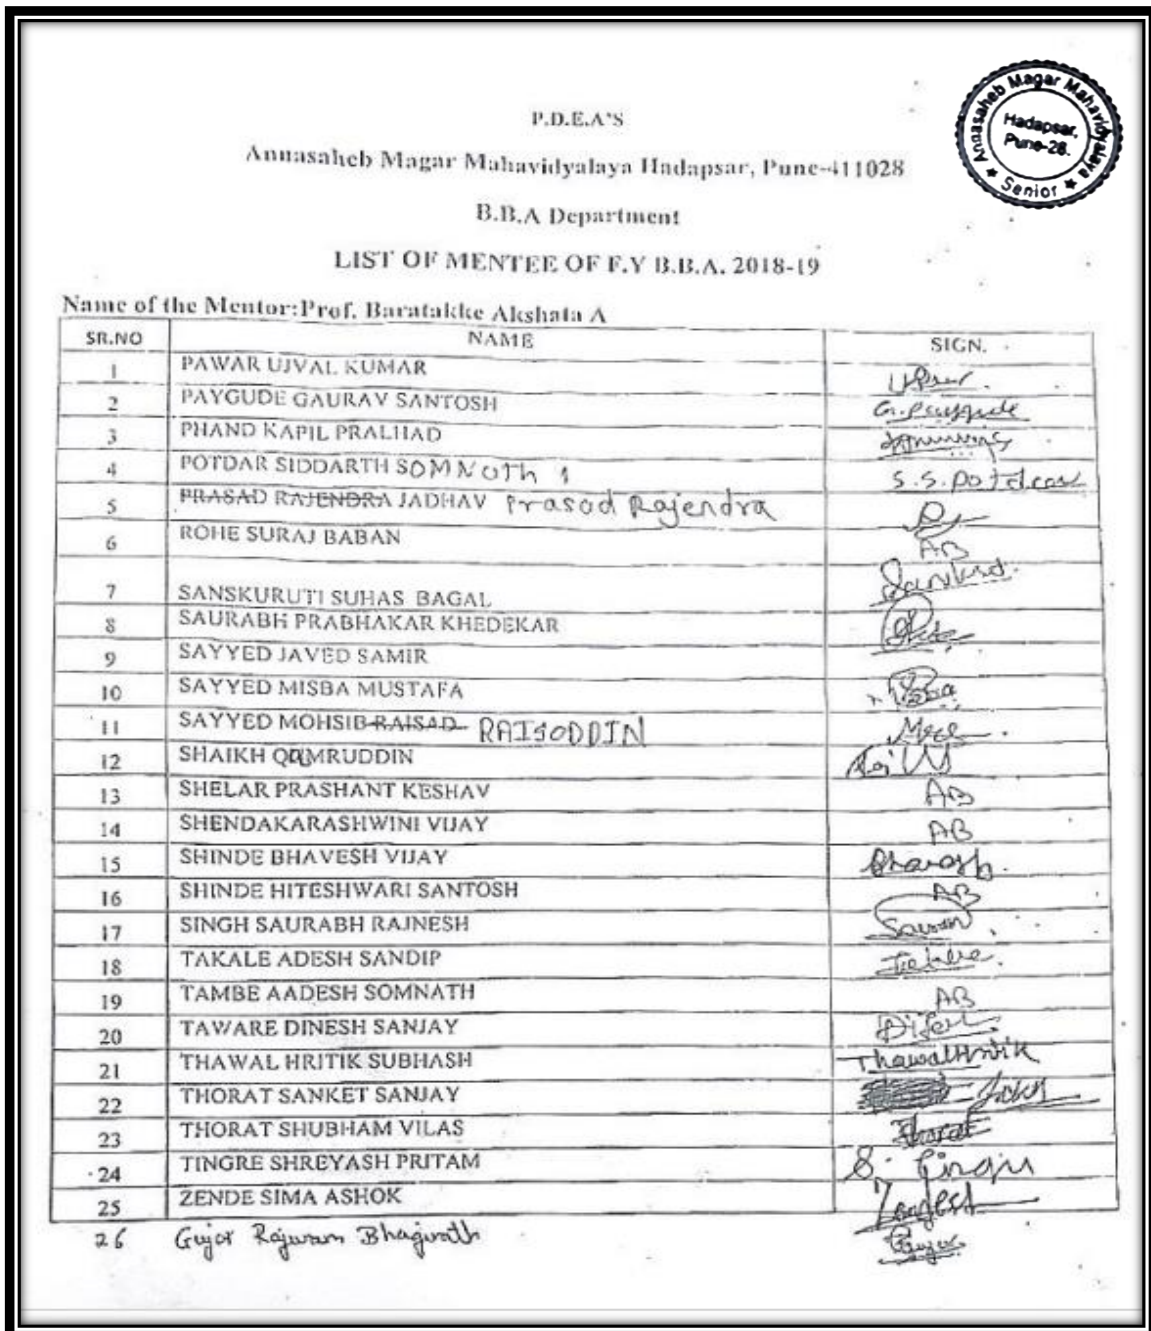 Annasaheb Magar Mahavidyalaya
Hadapsar,
Pune-28.
★ Senior ★
P.D.E.A'S
Annasaheb Magar Mahavidyalaya Hadapsar, Pune-411028
B.B.A Department
LIST OF MENTEE OF F.Y B.B.A. 2018-19
Name of the Mentor:Prof. Baratakke Akshata A
SR.NO NAME SIGN.
1 PAWAR UJVAL KUMAR
2 PAYGUDE GAURAV SANTOSH G. Paygude
3 PHAND KAPIL PRALHAD
4 POTDAR SIDDARTH SOMNOTH S.S. Potdar
5 PRASAD RAJENDRA JADHAV Prasod Rajendra
6 ROHE SURAJ BABAN AB
7 SANSKURUTI SUHAS BAGAL
8 SAURABH PRABHAKAR KHEDEKAR
9 SAYYED JAVED SAMIR
10 SAYYED MISBA MUSTAFA
11 SAYYED MOHSIB RAISAD RAISODDIN
12 SHAIKH QAMRUDDIN
13 SHELAR PRASHANT KESHAV AB
14 SHENDAKARASHWINI VIJAY AB
15 SHINDE BHAVESH VIJAY Bhavesh
16 SHINDE HITESHWARI SANTOSH AB
17 SINGH SAURABH RAJNESH
18 TAKALE ADESH SANDIP
19 TAMBE AADESH SOMNATH AB
20 TAWARE DINESH SANJAY
21 THAWAL HRITIK SUBHASH ThawalHritik
22 THORAT SANKET SANJAY
23 THORAT SHUBHAM VILAS Thorat
24 TINGRE SHREYASH PRITAM
25 ZENDE SIMA ASHOK
26 Gujar Rajwam Bhagwath